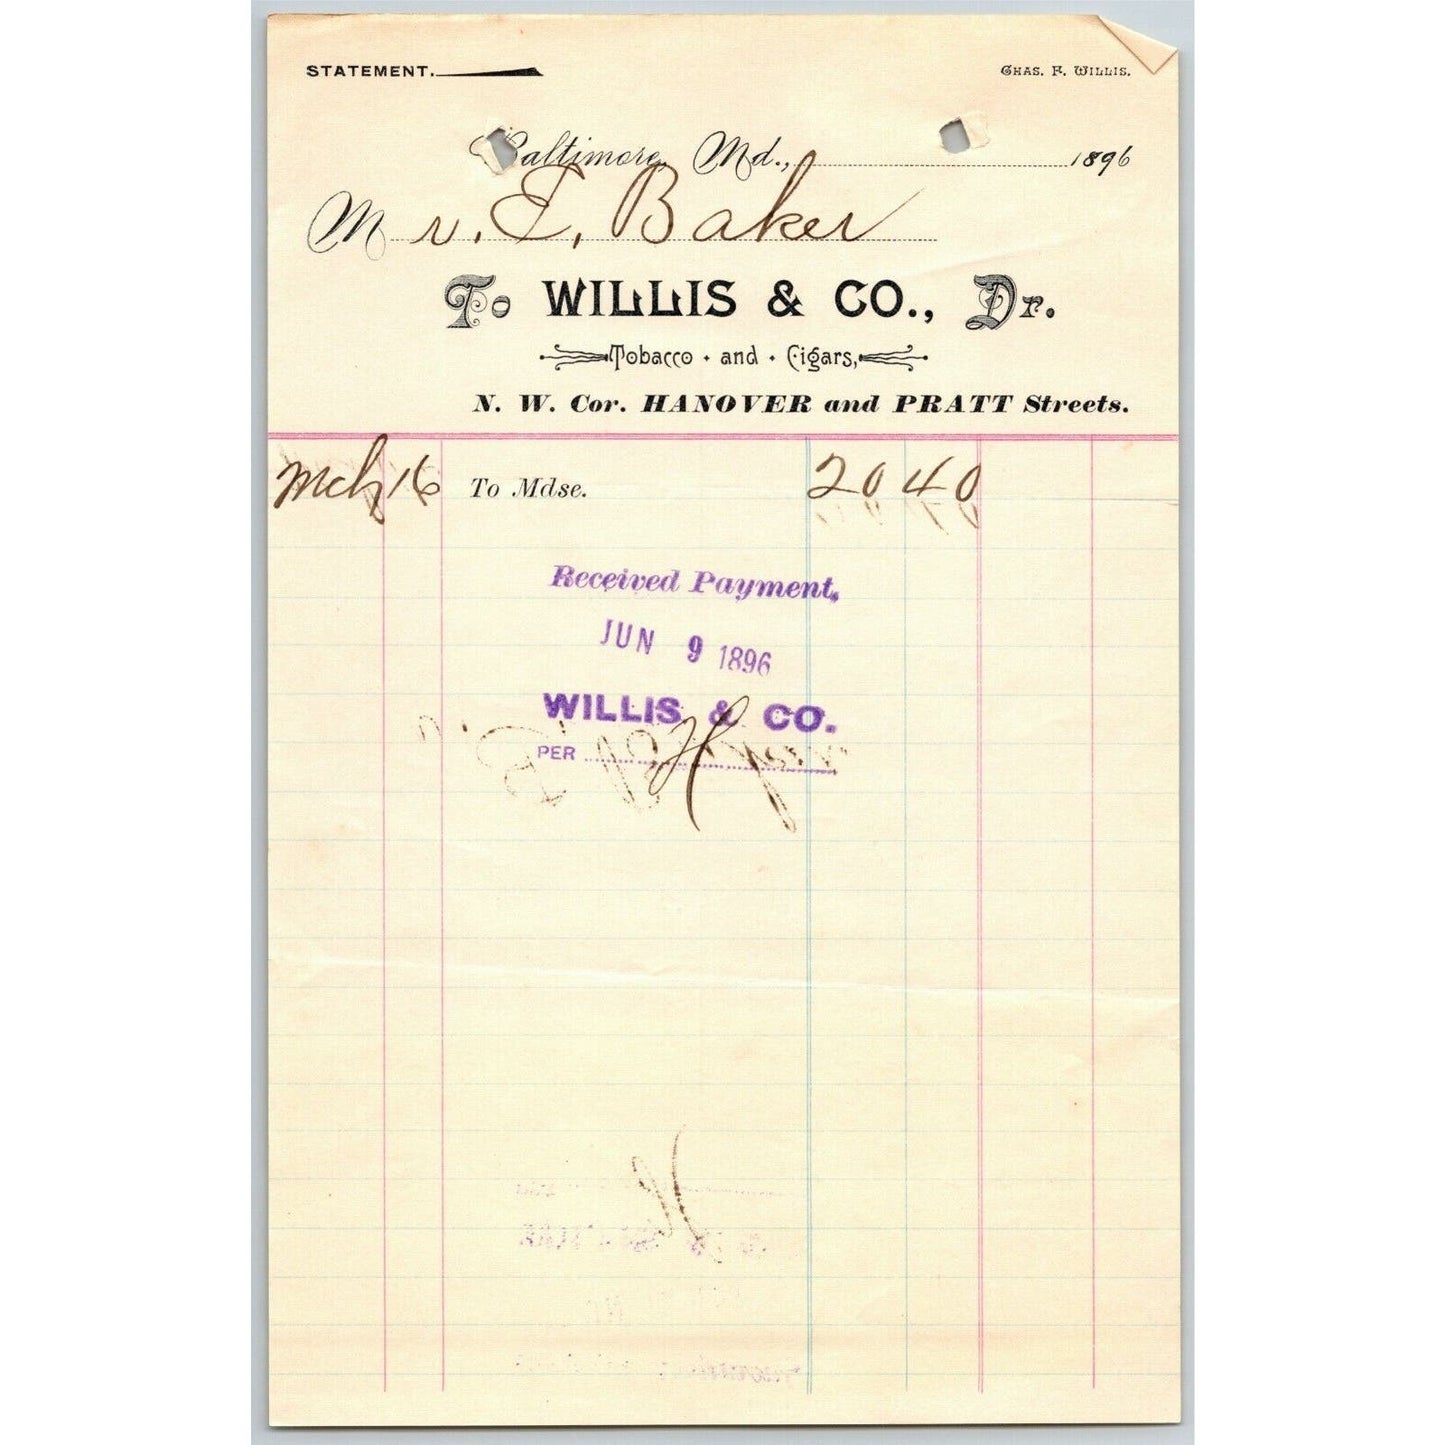 STATEMENT.
CHAS. F. WILLIS.
Baltimore, Md., 1896
Mr. E. Baker
To WILLIS & CO., Dr.
Tobacco and Cigars,
N. W. Cor. HANOVER and PRATT Streets.
Mch 16 To Mdse. 20 40
Received Payment,
JUN 9 1896
WILLIS & CO.
PER H